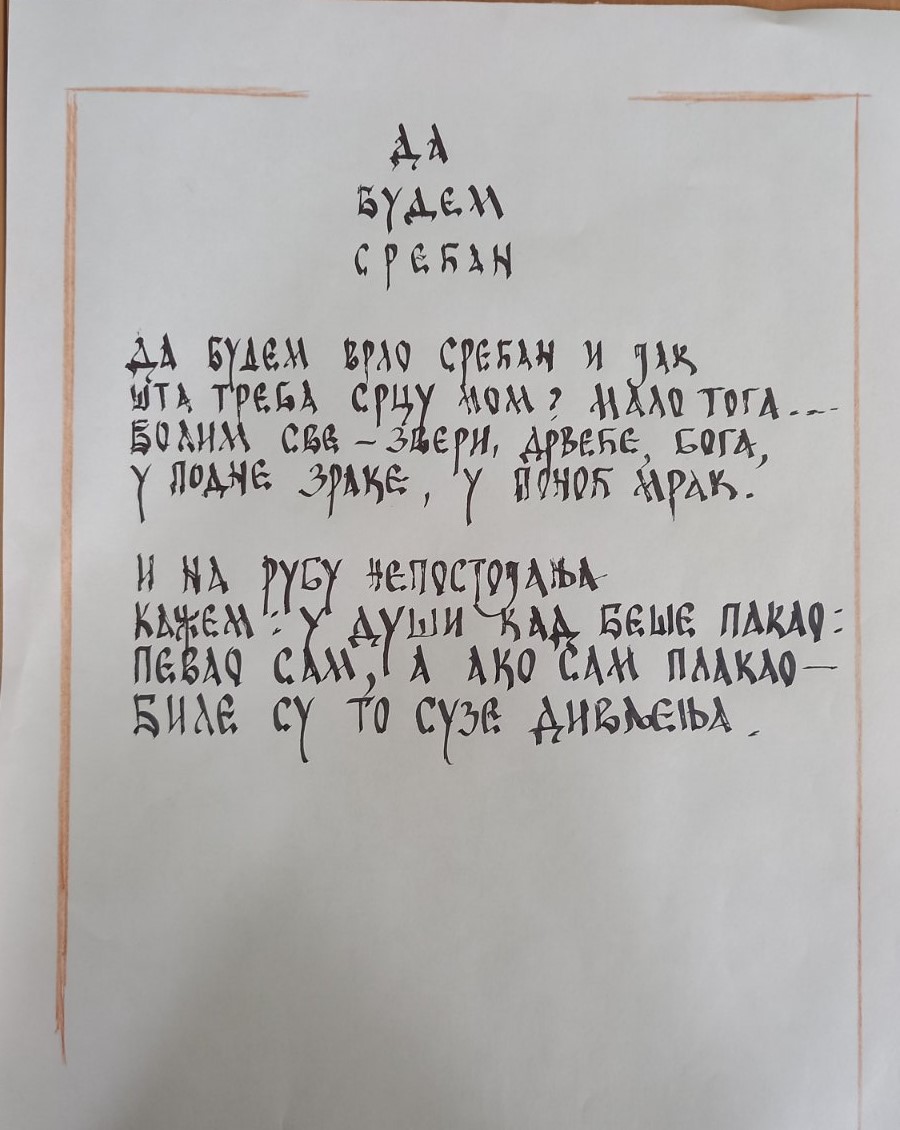 ДА
БУДЕМ
СРЕБАН
ДА БУДЕМ ВРЛО СРЕБАН И ЈАК
ШТА ТРЕБА СРЦУ МОМ? МАЛО ТОГА...
БОЛИМ СВЕ – ЗВЕРИ, ДРВЕЋЕ, БОГА,
У ПОДНЕ ЗРАКЕ, У ПОНОЋ МРАК.
И НА РУБУ НЕПОСТОЈАЊА
КАЖЕМ: У ДУШИ КАД БЕШЕ ПАКАО:
ПЕВАО САМ, А АКО САМ ПЛАКАО –
БИЛЕ СУ ТО СУЗЕ ДИВЉЕЊА.